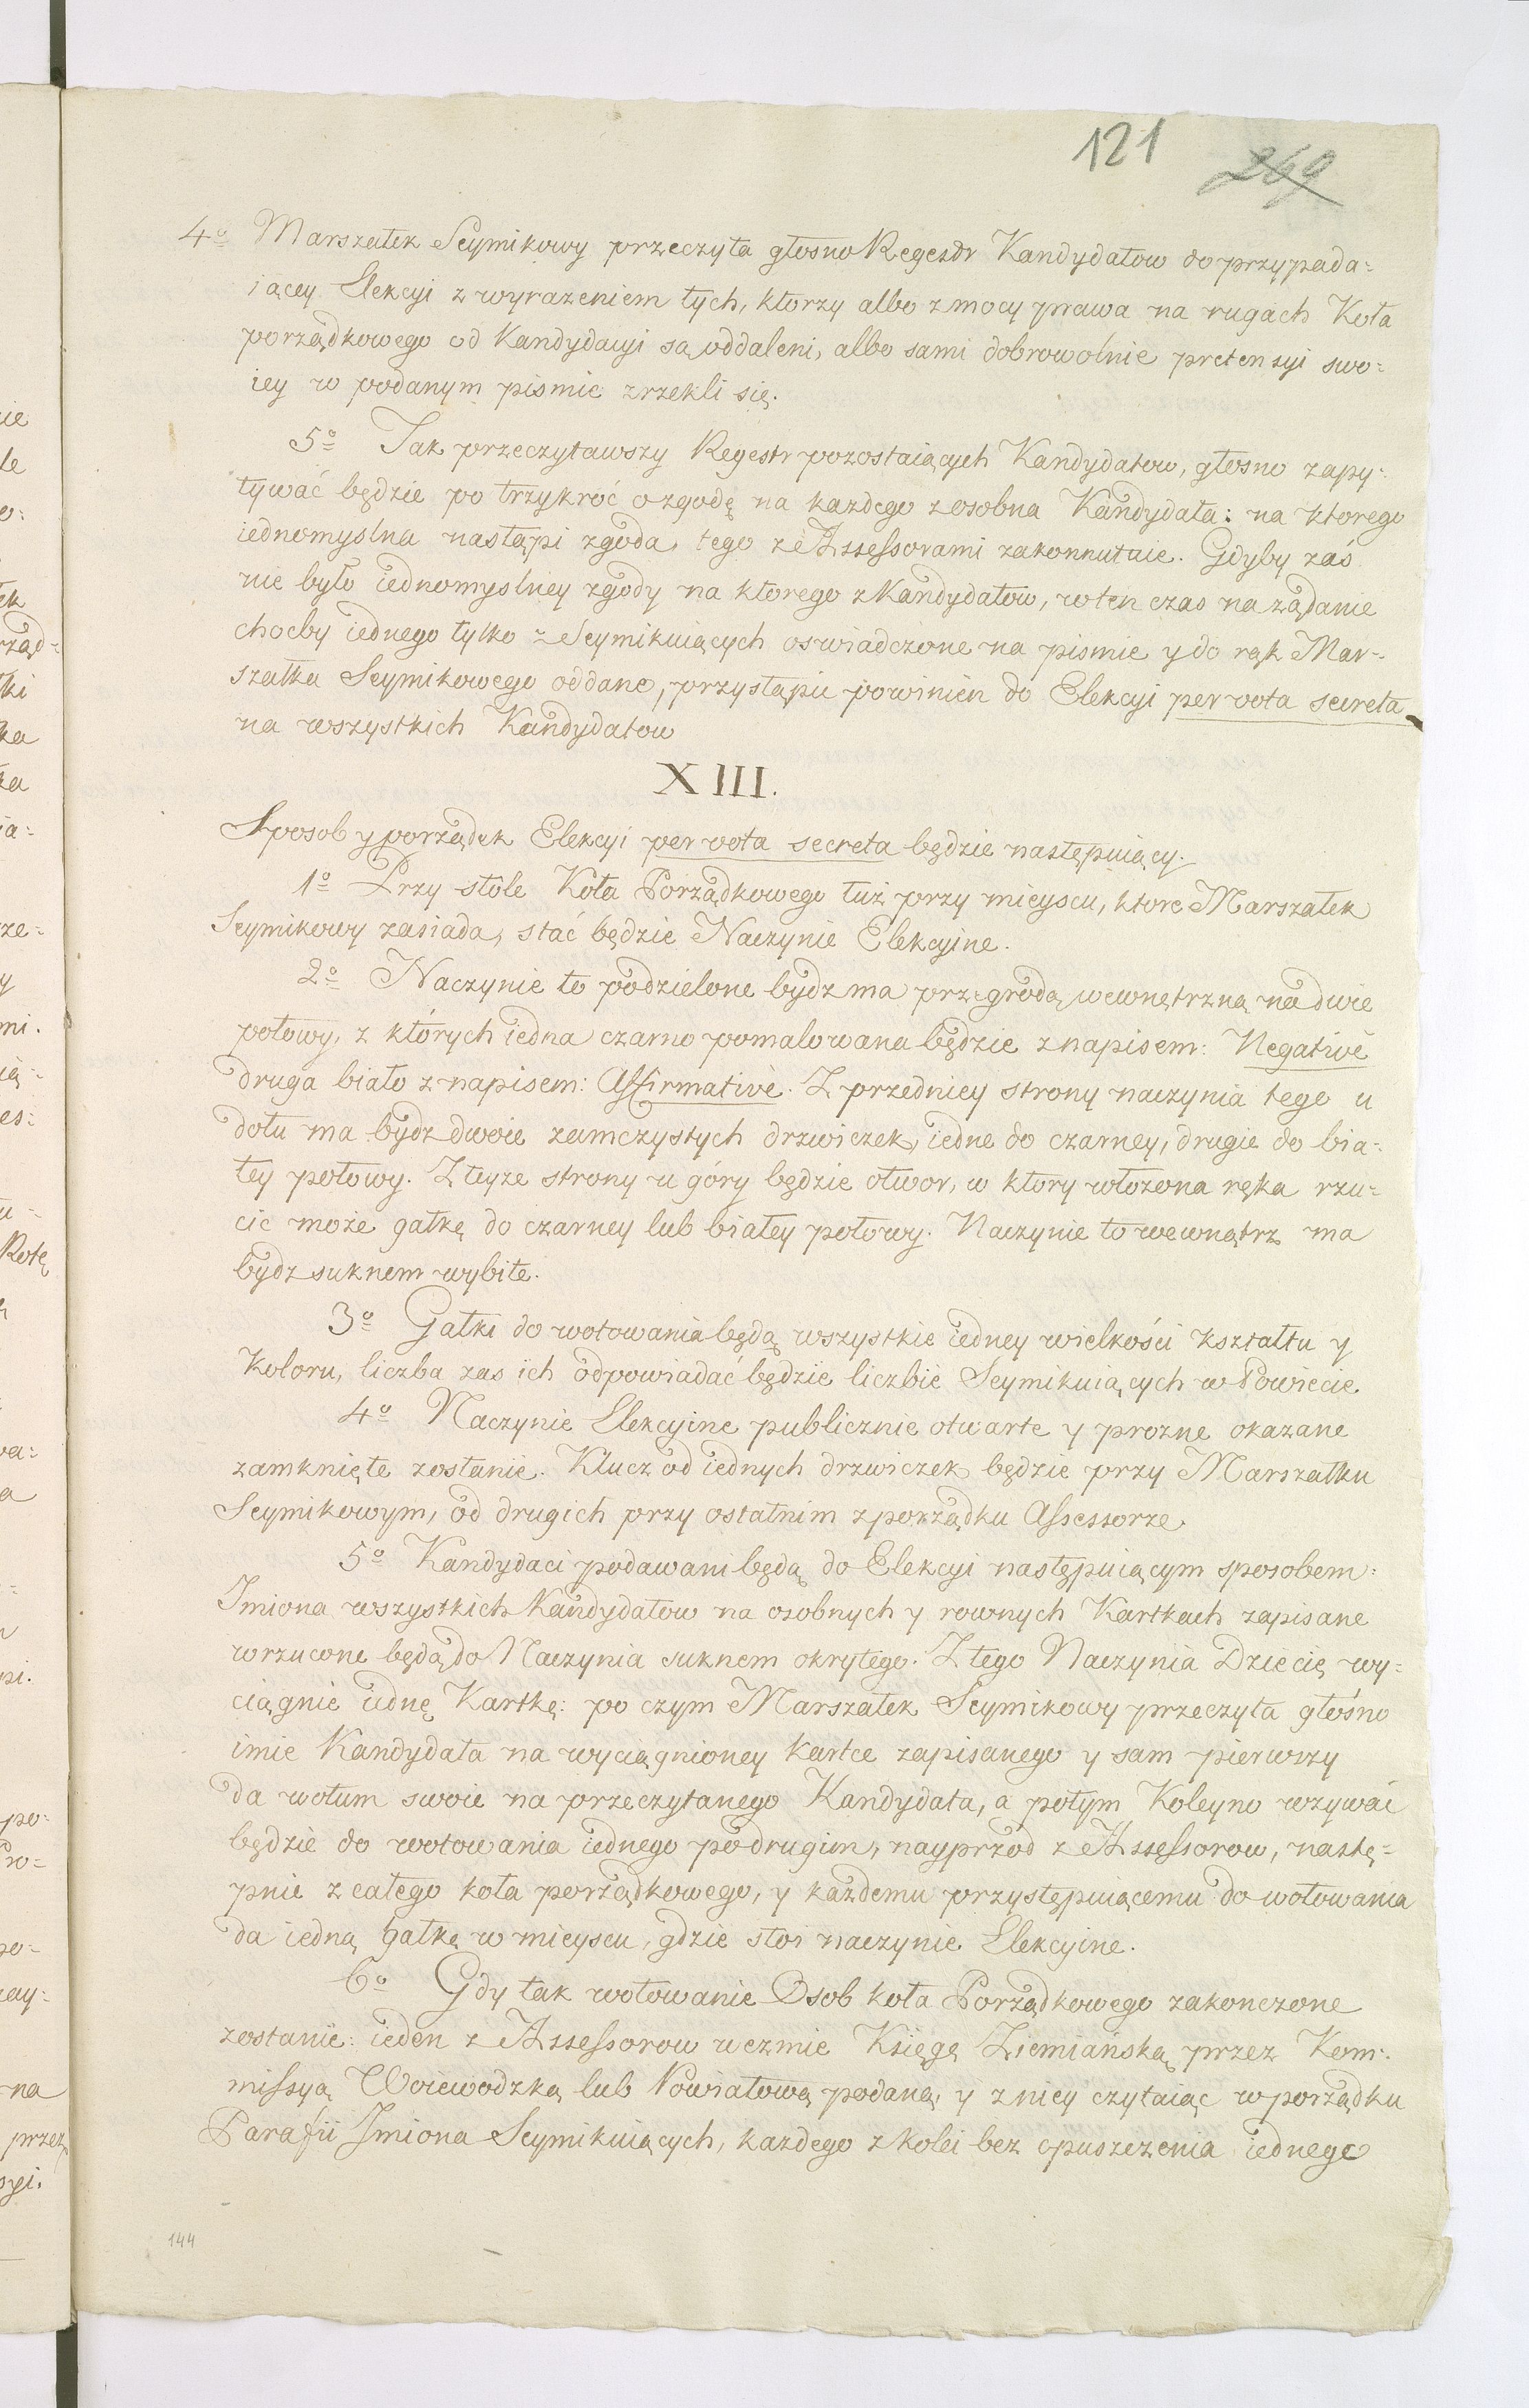 121 269
4o Marszałek Seymikowy przeczyta głosno Regestr Kandydatow do przypada=
iącey Elekcyi z wyrazeniem tych, ktorzy albo z mocy prawa na rugach Koła
porządkowego od Kandydacyi są oddaleni, albo sami dobrowolnie pretensyi swo=
iey w podanym pismie zrzekli się.
5o Tak przeczytawszy Regestr pozostaiących Kandydatow, głosno zapy=
tywać będzie po trzykroć o zgodę na kazdego z osobna Kandydata: na ktorego
iednomyslna nastąpi zgoda, tego z Assessorami zakonnutuie. Gdyby zaś
nie było iednomyslney zgody na ktorego z Kandydatow, w ten czas na ządanie
choćby iednego tylko z Seymikuiących oswiadczone na pismie y do rąk Mar=
szałka Seymikowego oddane, przystąpić powinien do Elekcyi per vota secreta
na wszystkich Kandydatow
XIII.
Sposob y porządek Elekcyi per vota secreta będzie następuiący.
1o Przy stole Koła Porządkowego tuż przy mieyscu, ktore Marszałek
Seymikowy zasiada, stać będzie Naczynie Elekcyine.
2o Naczynie to podzielone bydz ma przegrodą wewnętrzną na dwie
połowy, z których iedna czarno pomalowana będzie z napisem: Negativè
druga biało z napisem: Affirmativè. Z przedniey strony naczynia tego u
dołu ma bydz dwoie zamczystych drzwiczek, iedne do czarney, drugie do bia=
łey połowy. Z teyze strony u góry będzie otwor, w ktory włozona ręka rzu=
cić może gałkę do czarney lub białey połowy. Naczynie to wewnątrz ma
bydz suknem wybite.
3o Gałki do wotowania będą wszystkie iedney wielkości kształtu y
koloru, liczba zas ich odpowiadać będzie liczbie Seymikuiących w Powiecie.
4o Naczynie Elekcyine publicznie otwarte y prozne okazane
zamknięte zostanie. Klucz od iednych drzwiczek będzie przy Marszałku
Seymikowym, od drugich przy ostatnim z porządku Assessorze.
5o Kandydaci podawani będą do Elekcyi następuiącym sposobem:
Imiona wszystkich Kandydatow na osobnych y rownych Kartkach zapisane
wrzucone będą do Naczynia suknem okrytego. Z tego Naczynia Dziecię wy=
ciągnie iednę Kartkę: po czym Marszałek Seymikowy przeczyta głośno
imie Kandydata na wyciągnioney kartce zapisanego y sam pierwszy
da wotum swoie na przeczytanego Kandydata, a potym Koleyno wzywać
będzie do wotowania iednego po drugim, nayprzod z Assessorow, nastę=
pnie z całego koła porządkowego, y każdemu przystępuiącemu do wotowania
da iedną gałkę w mieyscu, gdzie stoi naczynie Elekcyine.
6o Gdy tak wotowanie Osob koła Porządkowego zakonczone
zostanie: ieden z Assessorow wezmie Księgę Ziemiańską przez Kom=
missyą Woiewodzką lub Powiatową podaną, y z niey czytaiąc w porządku
Parafii Imiona Seymikuiących, kazdego z kolei bez opuszczenia iednego
144